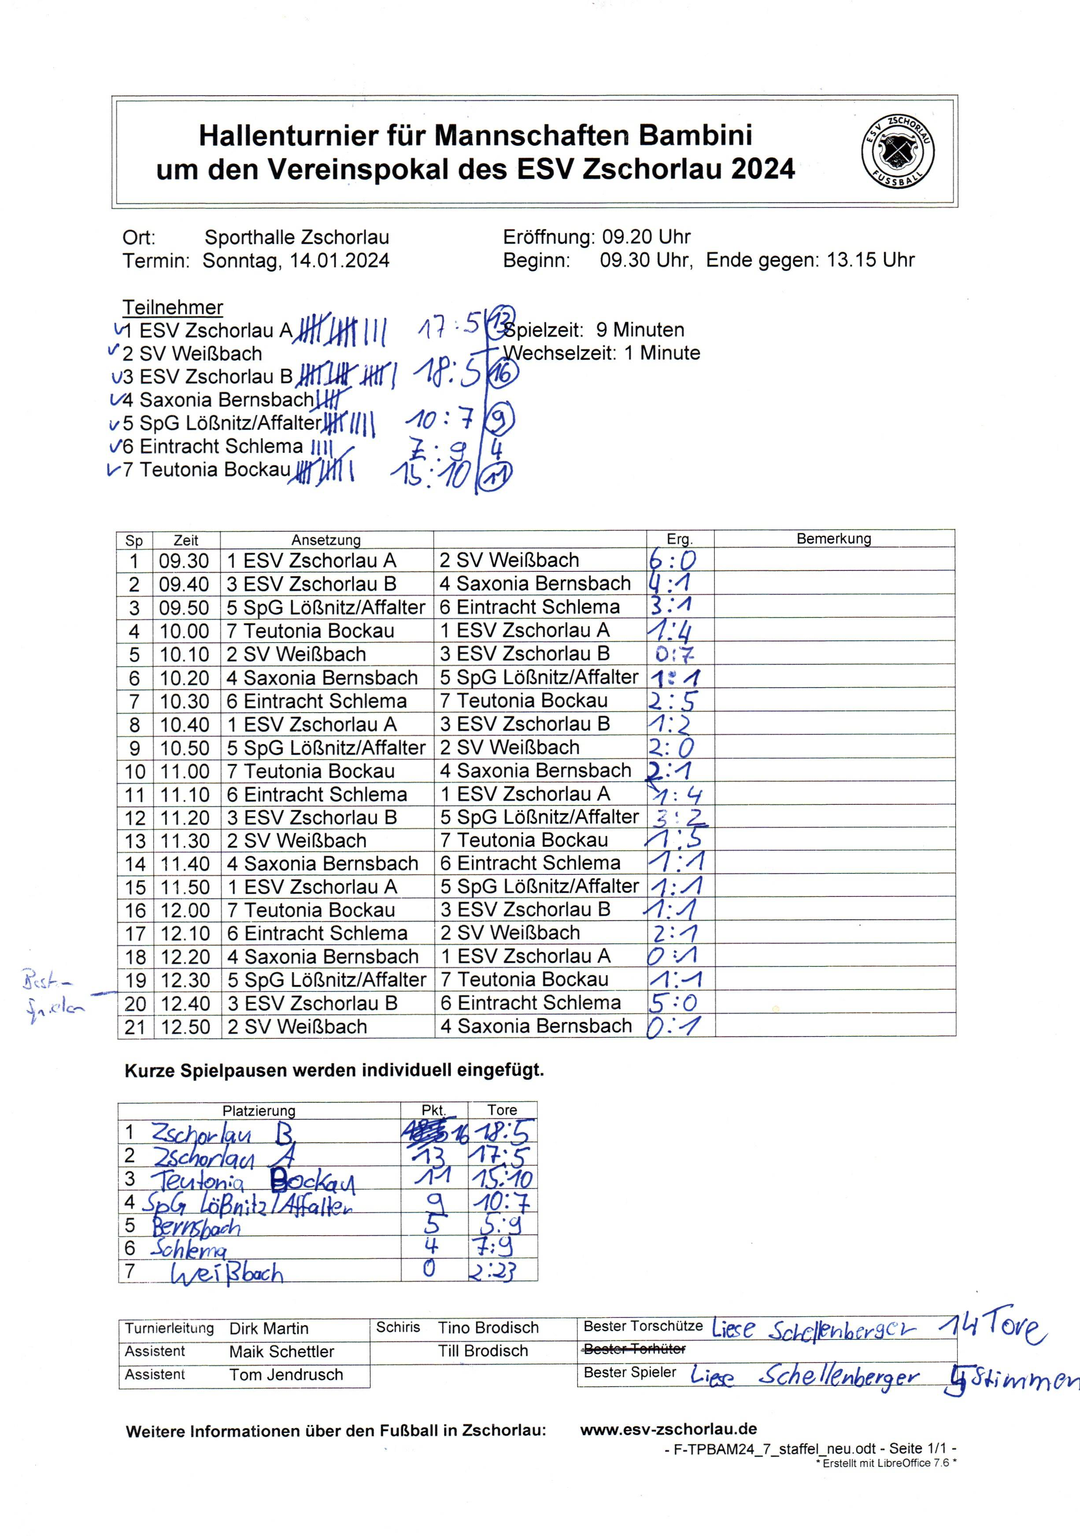 Hallenturnier für Mannschaften Bambini
um den Vereinspokal des ESV Zschorlau 2024
ESV ZSCHORLAU
FUSSBALL
Ort: Sporthalle Zschorlau Eröffnung: 09.20 Uhr
Termin: Sonntag, 14.01.2024 Beginn: 09.30 Uhr, Ende gegen: 13.15 Uhr
Teilnehmer
1 ESV Zschorlau A 17:5 13 Spielzeit: 9 Minuten
2 SV Weißbach Wechselzeit: 1 Minute
3 ESV Zschorlau B 18:5 16
4 Saxonia Bernsbach
5 SpG Lößnitz/Affalter 10:7 9
6 Eintracht Schlema 7:9 4
7 Teutonia Bockau 15:10 11
Sp Zeit Ansetzung Erg. Bemerkung
1 09.30 1 ESV Zschorlau A 2 SV Weißbach 6:0
2 09.40 3 ESV Zschorlau B 4 Saxonia Bernsbach 4:1
3 09.50 5 SpG Lößnitz/Affalter 6 Eintracht Schlema 3:1
4 10.00 7 Teutonia Bockau 1 ESV Zschorlau A 1:4
5 10.10 2 SV Weißbach 3 ESV Zschorlau B 0:7
6 10.20 4 Saxonia Bernsbach 5 SpG Lößnitz/Affalter 1:1
7 10.30 6 Eintracht Schlema 7 Teutonia Bockau 2:5
8 10.40 1 ESV Zschorlau A 3 ESV Zschorlau B 1:2
9 10.50 5 SpG Lößnitz/Affalter 2 SV Weißbach 2:0
10 11.00 7 Teutonia Bockau 4 Saxonia Bernsbach 2:1
11 11.10 6 Eintracht Schlema 1 ESV Zschorlau A 1:4
12 11.20 3 ESV Zschorlau B 5 SpG Lößnitz/Affalter 3:2
13 11.30 2 SV Weißbach 7 Teutonia Bockau 1:5
14 11.40 4 Saxonia Bernsbach 6 Eintracht Schlema 1:1
15 11.50 1 ESV Zschorlau A 5 SpG Lößnitz/Affalter 1:1
16 12.00 7 Teutonia Bockau 3 ESV Zschorlau B 1:1
17 12.10 6 Eintracht Schlema 2 SV Weißbach 2:1
18 12.20 4 Saxonia Bernsbach 1 ESV Zschorlau A 0:1
19 12.30 5 SpG Lößnitz/Affalter 7 Teutonia Bockau 1:1
20 12.40 3 ESV Zschorlau B 6 Eintracht Schlema 5:0
21 12.50 2 SV Weißbach 4 Saxonia Bernsbach 0:1
Kurze Spielpausen werden individuell eingefügt.
Platzierung Pkt. Tore
1 Zschorlau B 16 18:5
2 Zschorlau A 13 17:5
3 Teutonia Bockau 11 15:10
4 SpG Lößnitz/Affalter 9 10:7
5 Bernsbach 5 5:9
6 Schlema 4 7:9
7 Weißbach 0 2:23
Turnierleitung Dirk Martin Schiris Tino Brodisch Bester Torschütze Liese Schellenberger 14 Tore
Assistent Maik Schettler Till Brodisch Bester Torhüter
Assistent Tom Jendrusch Bester Spieler Liese Schellenberger 5 Stimmen
Weitere Informationen über den Fußball in Zschorlau: www.esv-zschorlau.de
- F-TPBAM24_7_staffel_neu.odt - Seite 1/1 -
* Erstellt mit LibreOffice 7.6 *